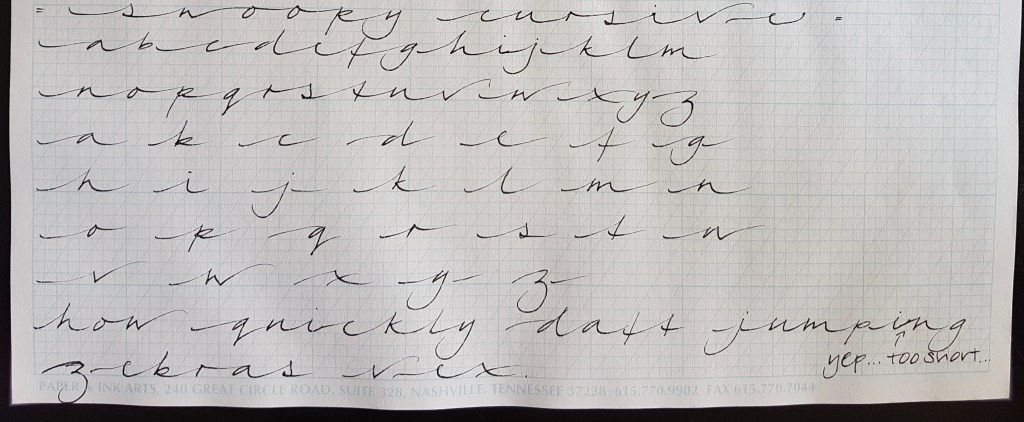 = snoopy cursive =
abcdefghijklm
nopqrstuvwxyz
a b c d e f g
h i j k l m n
o p q r s t u
v w x y z
how quickly daft jumping
yep... too short...
zebras vex.
PAPER & INK ARTS, 240 GREAT CIRCLE ROAD, SUITE 328, NASHVILLE, TENNESSEE 37228 615.770.9902 FAX 615.770.7044